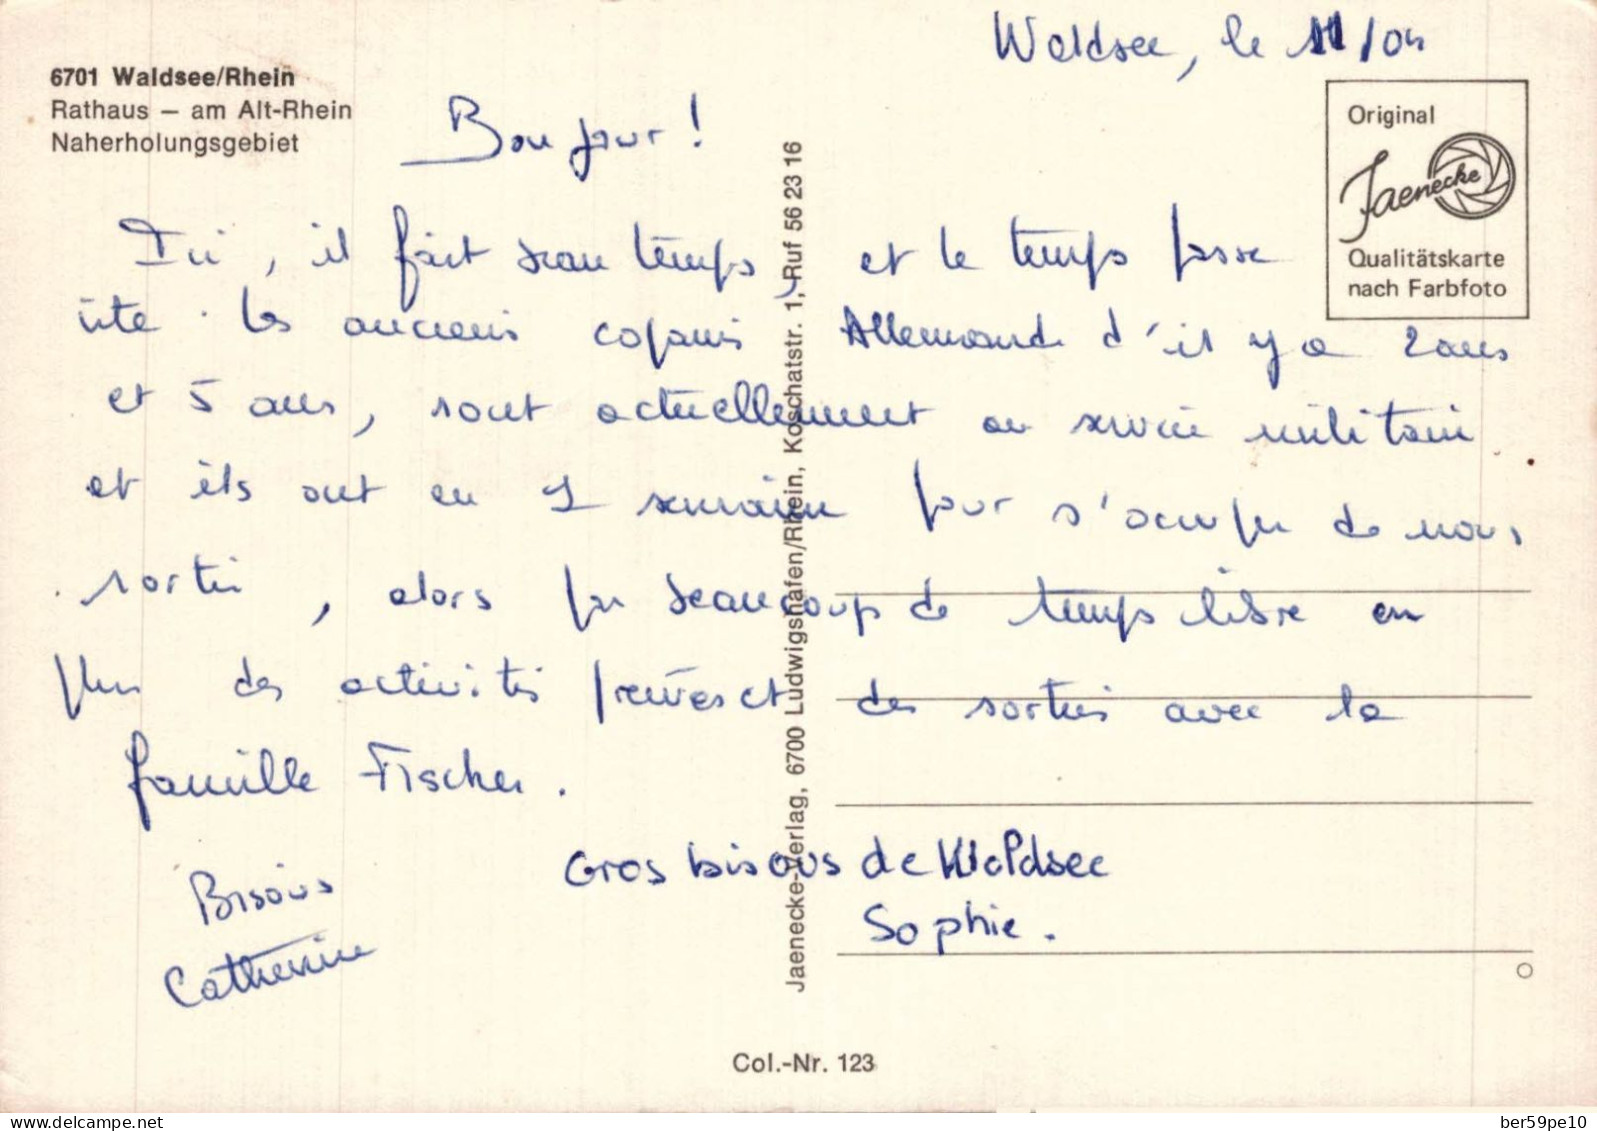 Waldsee, le 11/04
6701 Waldsee/Rhein
Rathaus – am Alt-Rhein
Naherholungsgebiet
Bonjour !
Original
Jaenecke
Qualitätskarte
nach Farbfoto
Ici, il fait beau temps, et le temps passe
vite. Les anciens copains Allemands d'il y a 2 ans
et 5 ans, sont actuellement au service militaire
et ils ont eu 1 semaine pour s'occuper de nous
sortir, alors pas beaucoup de temps libre en
plus des activités prévues et des sorties avec la
famille Fischer.
Gros bisous de Waldsee
Sophie.
Bisous
Catherine
Jaenecke-Verlag, 6700 Ludwigshafen/Rhein, Koschatstr. 1, Ruf 56 23 16
Col.-Nr. 123
delcampe.net
ber59pe10